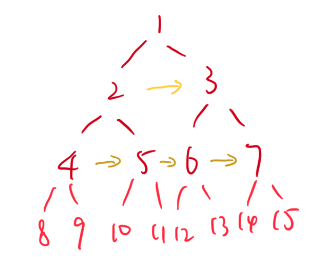 1
2 → 3
4 → 5 → 6 → 7
8 9 10 11 12 13 14 15